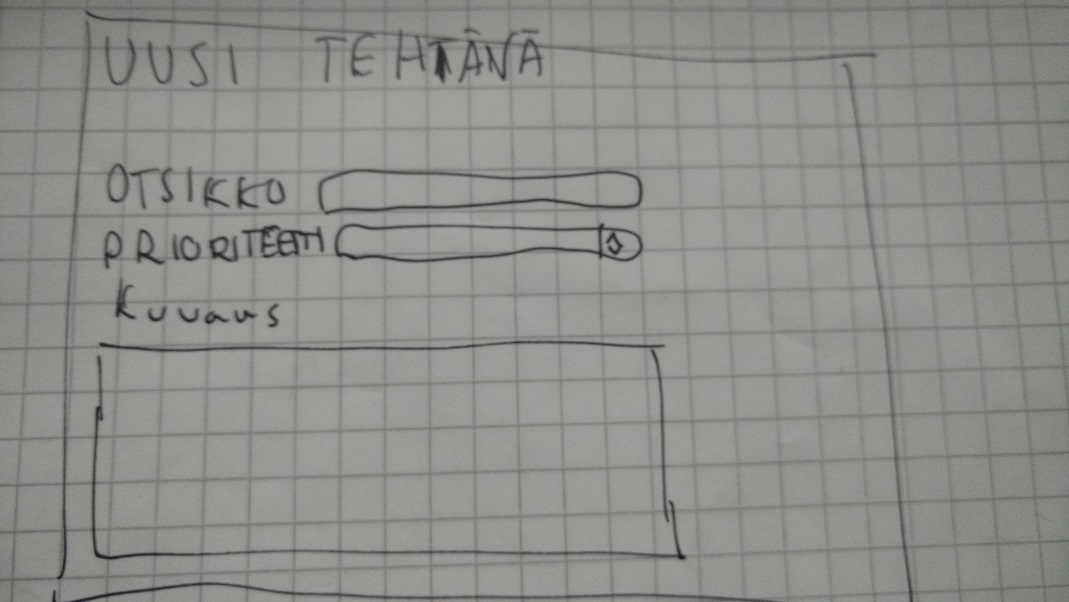 UUSI TEHTÄVÄ
OTSIKKO
PRIORITEETTI
Kuvaus